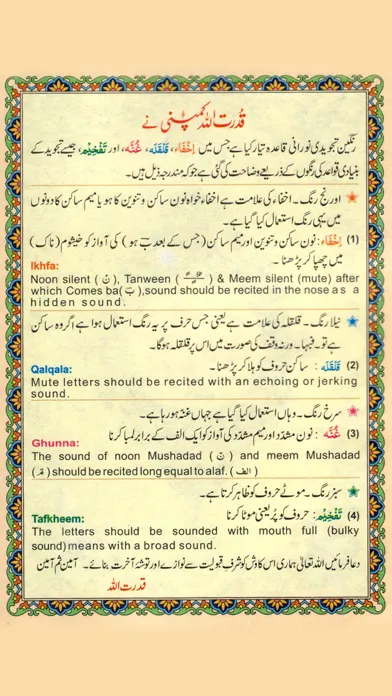 قدرت اللہ کمپنی نے
رنگین تجویدی نورانی قاعدہ تیار کیا ہے جس میں اِخْفَاء، قَلْقَلَه، غُنَّه، اور تَفْخِيْم، جیسے تجوید کے
بنیادی قواعد کی رنگوں کے ذریعے وضاحت کی گئی ہے جو کہ مندرجہ ذیل ہیں۔
اورنج رنگ۔ اخفاء کی علامت ہے اخفاء خواہ نون ساکن و تنوین کا ہو یا میم ساکن کا دونوں
میں یہی رنگ استعمال کیا گیا ہے۔
(1) اِخْفَاء: نون ساکن و تنوین اور میم ساکن (جس کے بعد بَ ہو) کی آواز کو خیشوم (ناک)
میں چھپا کر پڑھنا۔
Ikhfa:
Noon silent (نْ), Tanween ( ـًـٍـٌ ) & Meem silent (mute) after
which Comes ba(بَ),sound should be recited in the nose as a
hidden sound.
نیلا رنگ۔ قلقلہ کی علامت ہے یعنی جس حرف پر یہ رنگ استعمال ہوا ہے اگر وہ ساکن
ہے تو فبہا۔ ورنہ وقف کی صورت میں اس پر قلقلہ ہوگا۔
(2) قَلْقَلَه: ساکن حروف کو ہلا کر پڑھنا۔
Qalqala:
Mute letters should be recited with an echoing or jerking
sound.
سرخ رنگ۔ وہاں استعمال کیا گیا ہے جہاں غنہ ہو رہا ہے۔
(3) غُنَّه: نون مشدّد اور میم مشدّد کی آواز کو ایک الف کے برابر لمبا کرنا
Ghunna:
The sound of noon Mushadad (نّ) and meem Mushadad
(مّ) should be recited long equal to alaf. (الف)
سبز رنگ۔ موٹے حروف کو ظاہر کرتا ہے۔
(4) تَفْخِيْم: حروف کو پُر یعنی موٹا کرنا
Tafkheem:
The letters should be sounded with mouth full (bulky
sound) means with a broad sound.
دعا فرمائیں اللہ تعالیٰ ہماری اس کاوش کو شرفِ قبولیت سے نوازے اور توشۂ آخرت بنائے۔ آمین ثم آمین
قدرت اللہ